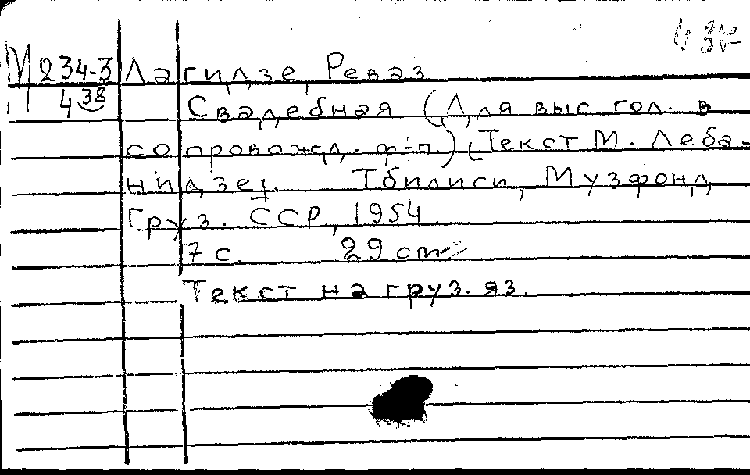 М 234-3 Лагидзе, Реваз
4 38 Свадебная (Для выс. гол. в
сопровожд. ф-п.) [Текст М. Леба-
нидзе]. Тбилиси, Музфонд
Груз. ССР, 1954
7 с. 29 cm
Текст на груз. яз.